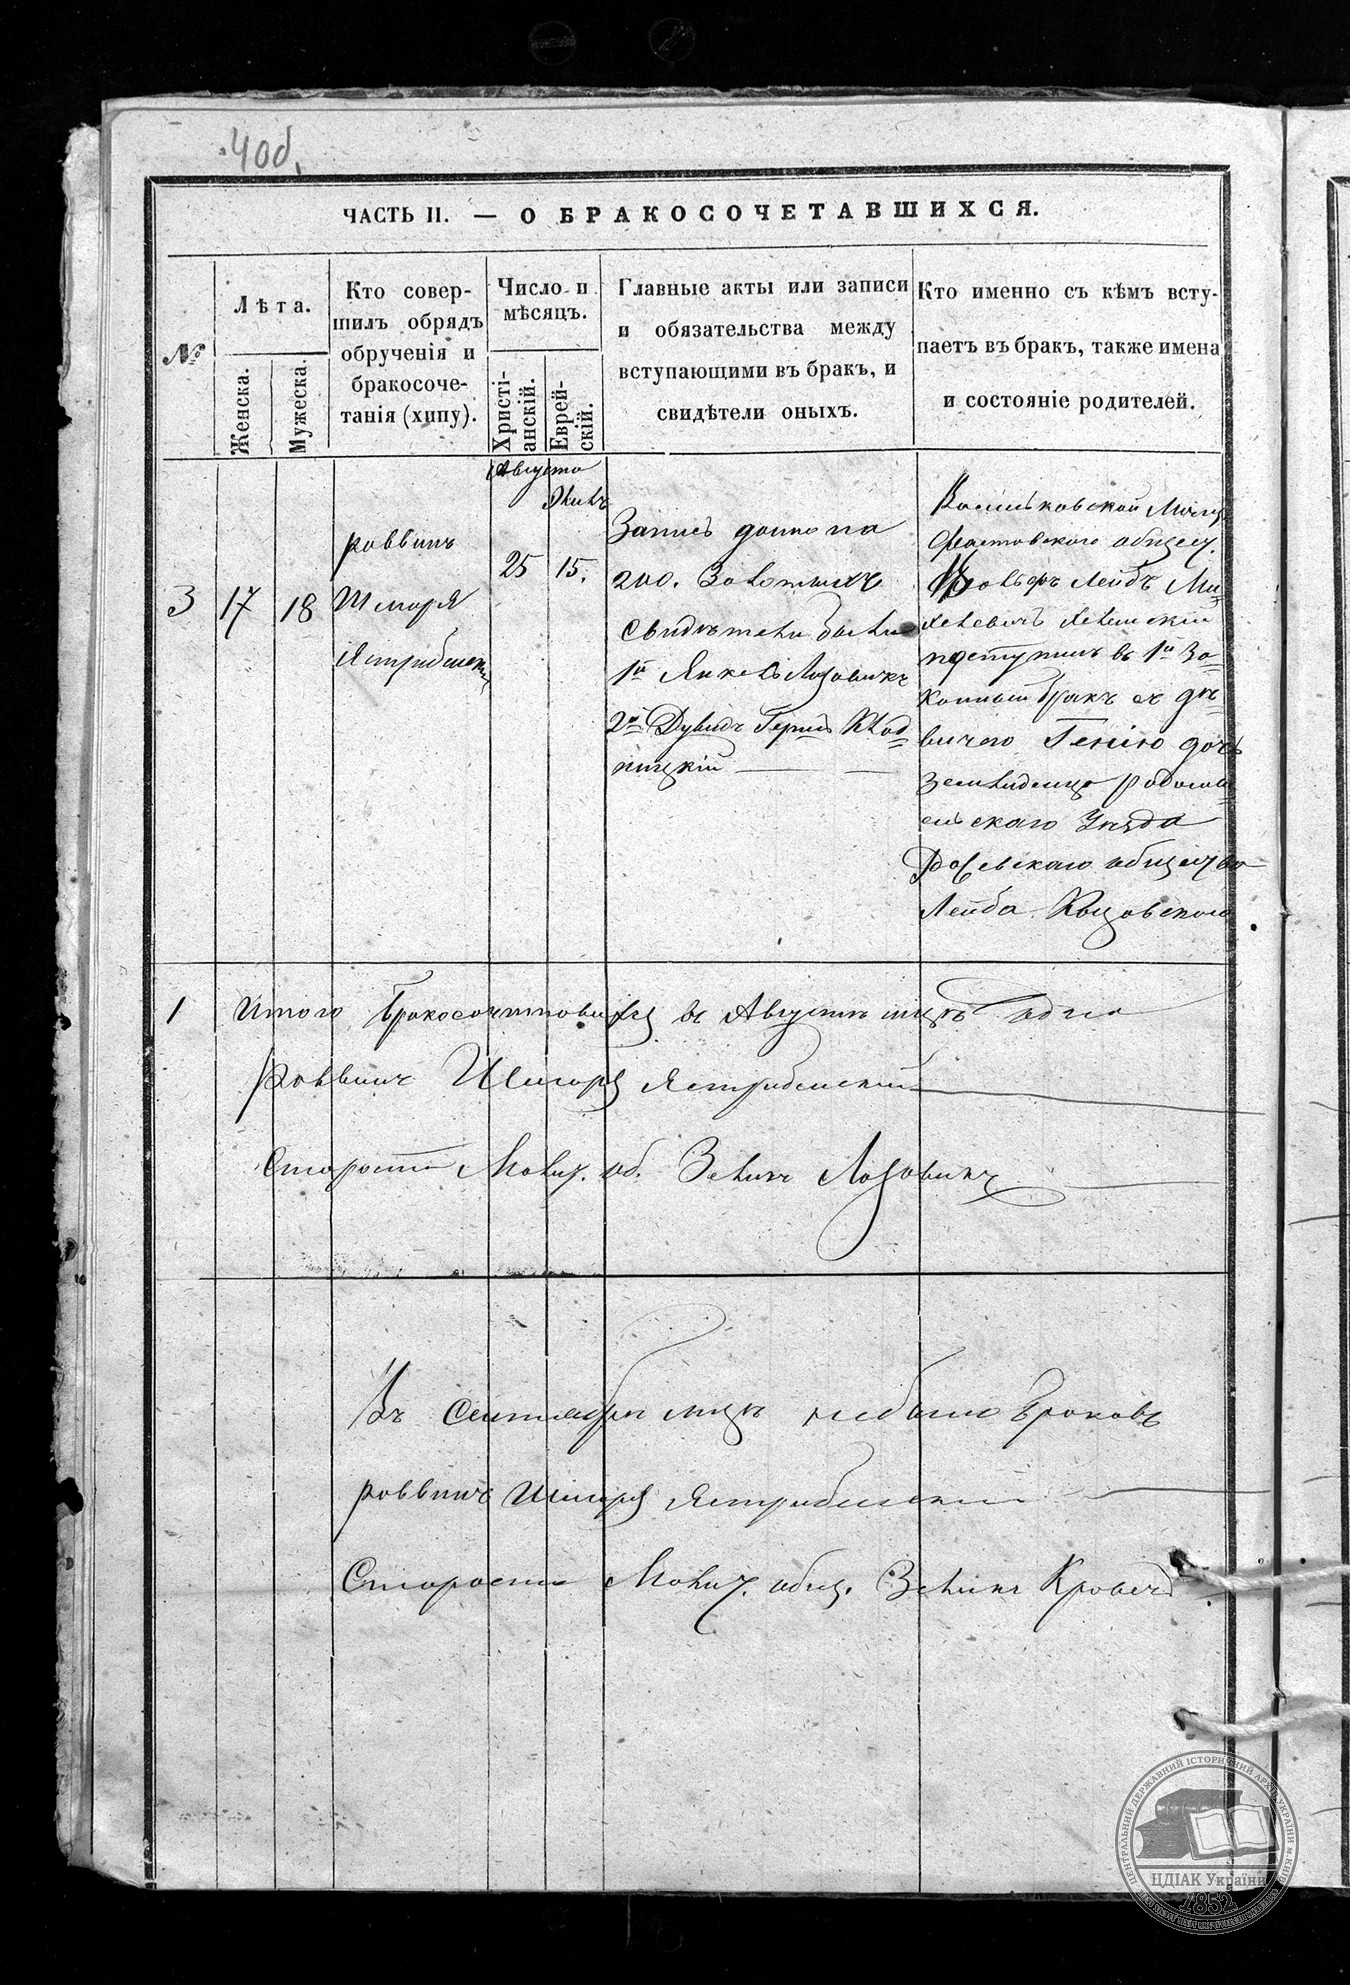 40б.
ЧАСТЬ II. — О БРАКОСОЧЕТАВШИХСЯ.
№
Лѣта.
Женска.
Мужеска.
Кто совер-
шилъ обрядъ
обрученія и
бракосоче-
танія (хипу).
Число и
мѣсяцъ.
Христі-
анскій.
Еврей-
скій.
Главные акты или записи
и обязательства между
вступающими въ бракъ, и
свидѣтели оныхъ.
Кто именно съ кѣмъ всту-
паетъ въ бракъ, также имена
и состояніе родителей.
3
17
18
раввинъ
Шмаря
Ястрибенски
Августа
25
Элилъ
15.
Запись дана на
200. Золотыхъ
Свидѣтели были
1й Янкель Лозовикъ
2й Дувидъ Герш Клад=
ницкій
Фастовского общес.
Лейбъ Ми=
хелевичъ
поступилъ въ 1й За=
конный бракъ съ дѣ=
вицею Генію дочь
земледелца Радомы=
сльскаго Уѣзда
общества
Лейба
1 Итого бракосочетавшихся въ Августѣ мцѣ одна
Раввинъ Шмаря Ястрибенскій
Староста Молит. об. Зелик Лозовикъ
Въ Сентябрѣ мцѣ небыло браковъ
раввинъ Шмаря Ястрибенский
Староста Молит. общ. Зеликъ
ЦЕНТРАЛЬНИЙ ДЕРЖАВНИЙ ІСТОРИЧНИЙ АРХІВ УКРАЇНИ М. КИЇВ
ЦДІАК України
1852